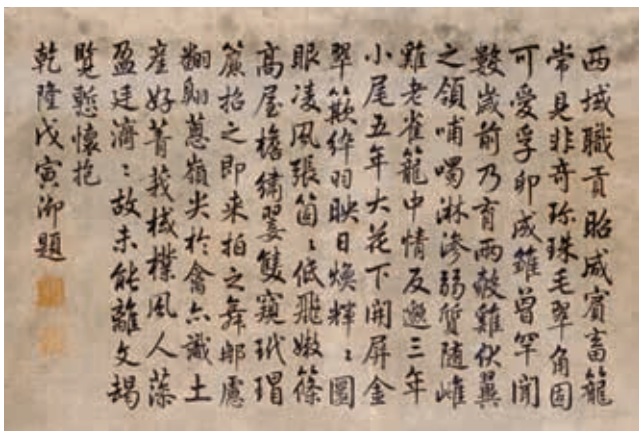 西域職貢昭咸賓畜籠
常見非奇珍珠毛翠角固
可愛孚卵成雛曾罕聞
數歲前乃育兩鷇雞伏翼
之領哺噣淋滲弱質隨雌
雞老雀籠中情反邈三年
小尾五年大花下開屏金
翠綷羽映日煥輝〻圓
眼凌風張箇〻低飛嫩篠
高屋檐繡翣雙窺玳瑁
簾招之即来拍之舞那慮
翻翱蔥嶺尖於禽亦識土
産好菁莪棫樸風人藻
盈廷濟〻故未能離文揭
覽慙懷抱
乾隆戊寅御題